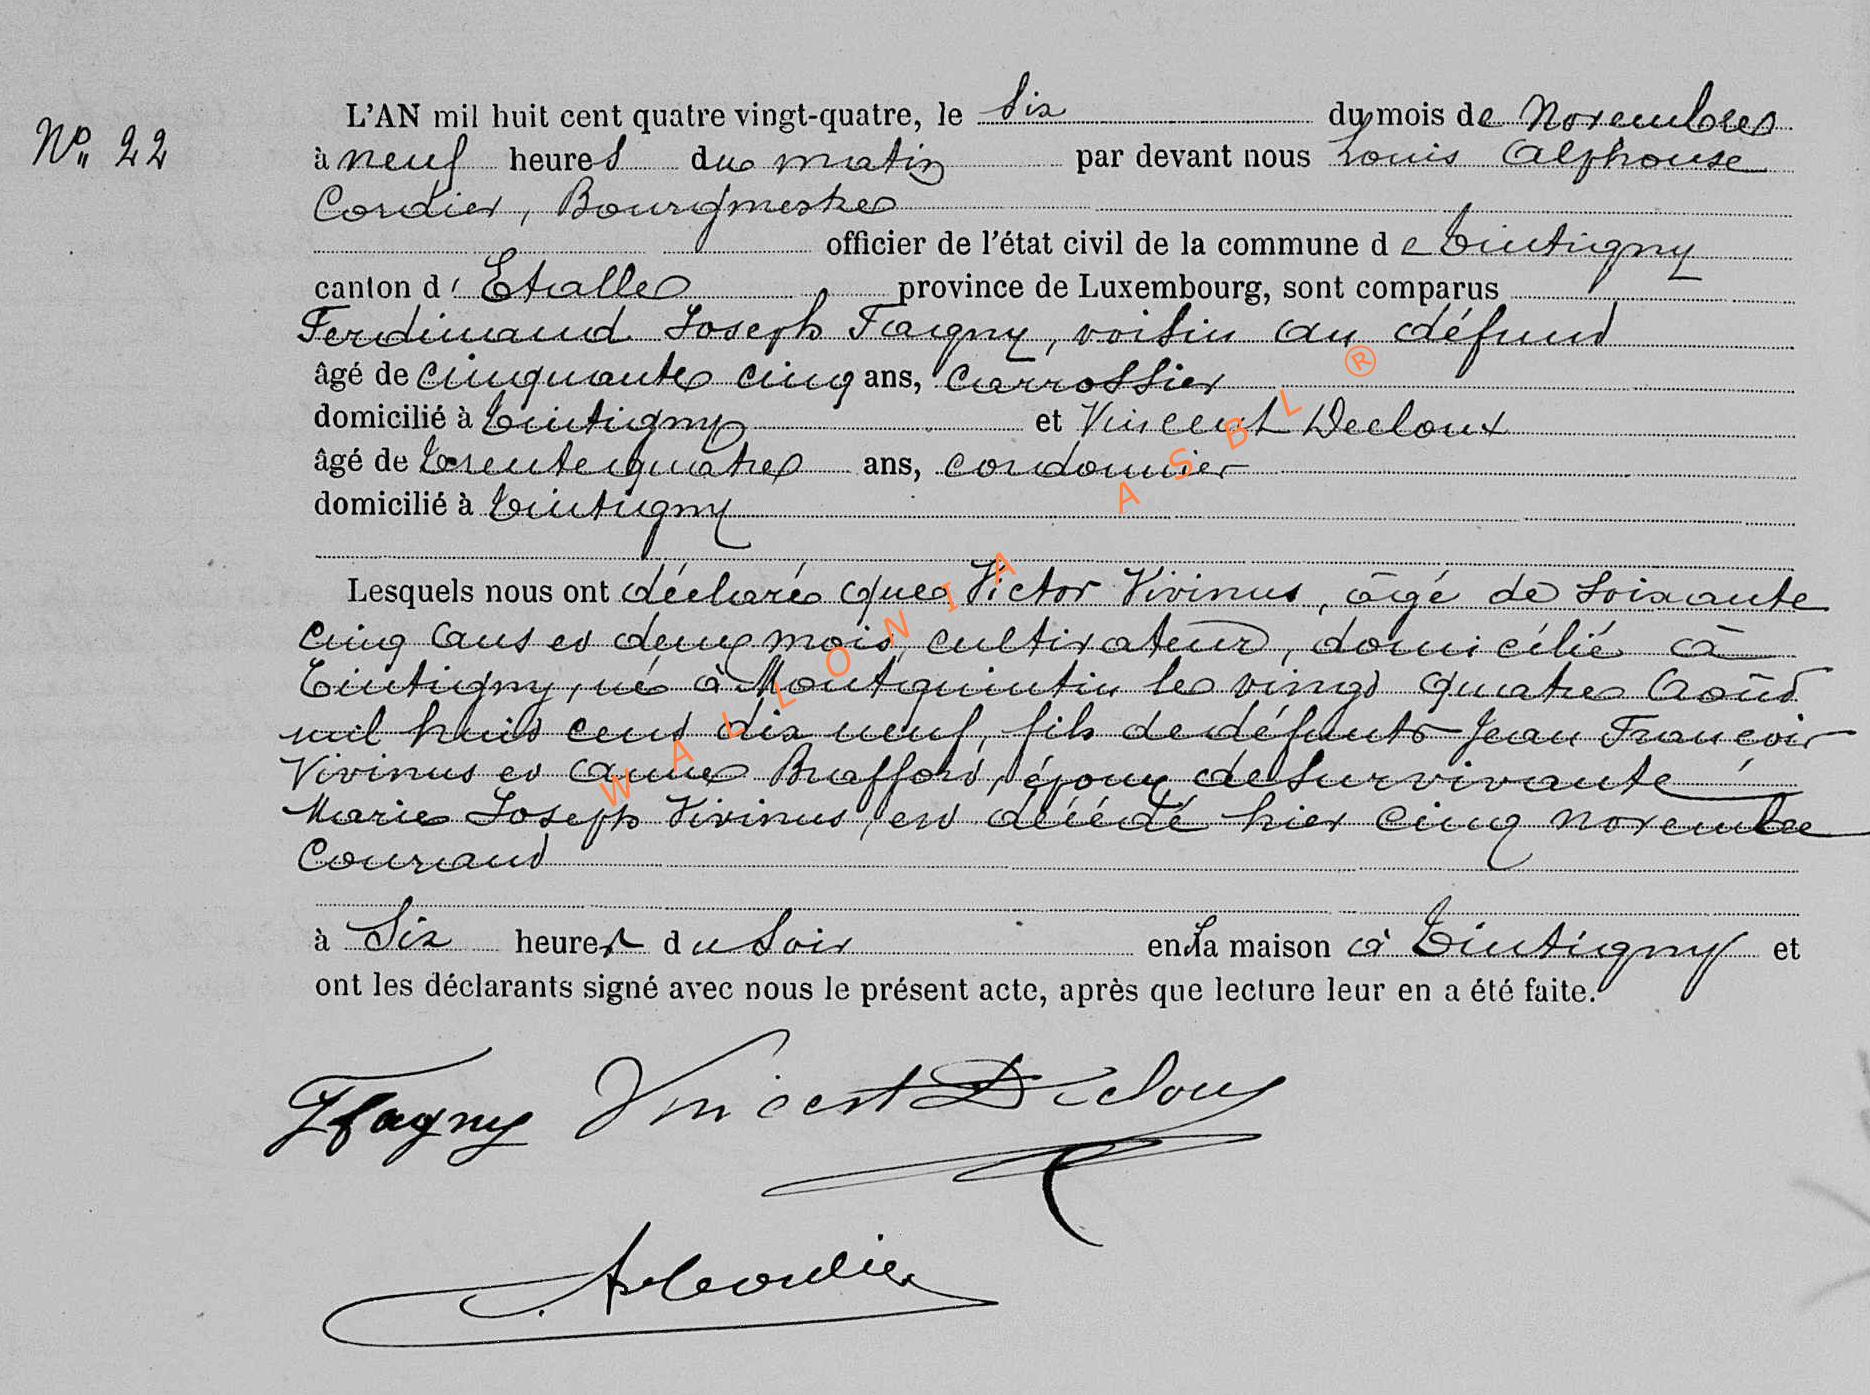 Nº 22
L'AN mil huit cent quatre vingt-quatre, le Six du mois de Novembre
à neuf heures du matin par devant nous Louis Alphonse
Cordier, Bourgmestre
officier de l'état civil de la commune de Tintigny
canton d' Etalle province de Luxembourg, sont comparus
Ferdinand Joseph Fagny, voisin au défunt
âgé de cinquante cinq ans, carrossier
domicilié à Tintigny et Vincent Decloux
âgé de trente quatre ans, cordonnier
domicilié à Tintigny
Lesquels nous ont déclaré que Victor Vivinus, âgé de soixante
cinq ans et deux mois, cultivateur, domicilié à
Tintigny, né à Montquintin le vingt quatre Août
mil huit cent dix neuf, fils de défunts Jean François
Vivinus et Anne Braffort, époux de survivante
Marie Joseph Vivinus, est décédé hier cinq novembre
courant
à Six heures du Soir en sa maison à Tintigny et
ont les déclarants signé avec nous le présent acte, après que lecture leur en a été faite.
Fagny Vincent Decloux
Cordier
WALLONIA ASBL ®